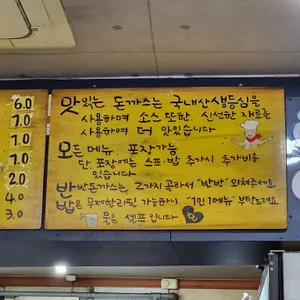 6.0
7.0
1.0
1.0
1.0
2.0
4.0
3.0
맛있는 돈까스는 국내산생등심을
사용하며 소스 또한, 신선한 재료를
사용하여 더 맛있습니다
모든 메뉴 포장가능
단 포장에는 스프·밥 추가시 추가비용
있습니다
반반돈까스는, 2가지 골라서 "반반" 외쳐주세요
밥은 무제한리필 가능하시 "1인 1메뉴" 부탁드려요
물은 셀프 입니다